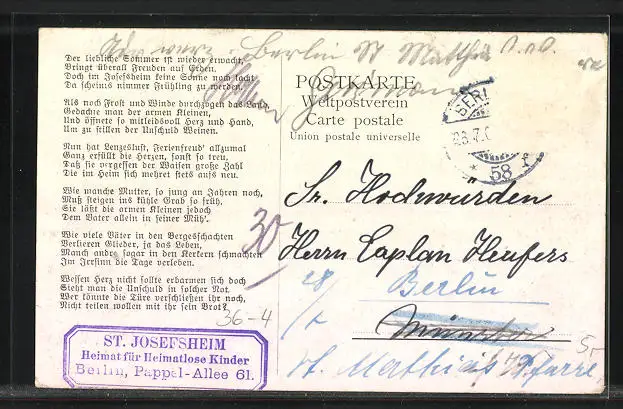 Der liebliche Sommer ist wieder erwacht,
Bringt überall Freuden auf Erden.
Doch im Josefsheim keine Sonne noch lacht
Da scheints nimmer Frühling zu werden.
Als noch Frost und Winde durchzogen das Land,
Gedachte man der armen Kleinen,
Und öffnete so mitleidsvoll Herz und Hand,
Um zu stillen der Unschuld Weinen.
Nun hat Lenzeslust, Ferienfreud' allzumal
Ganz erfüllt die Herzen, sonst so treu,
Daß sie vergessen der Waisen große Zahl
Die im Heim sich mehret stets aufs neu.
Wie manche Mutter, so jung an Jahren noch,
Muß steigen ins kühle Grab so früh,
Sie läßt die armen Kleinen jedoch
Dem Vater allein in seiner Müh'.
Wie viele Väter in den Bergesschachten
Verlieren Glieder, ja das Leben,
Manch andre sogar in den Kerkern schmachten
Im Irrsinn die Tage verleben.
Wessen Herz nicht sollte erbarmen sich doch
Sieht man die Unschuld in solcher Not.
Wer könnte die Türe verschließen ihr noch,
Nicht teilen wollen mit ihr sein Brot?
36-4
ST. JOSEFSHEIM
Heimat für Heimatlose Kinder
Berlin, Pappel-Allee 61.
Berlin St Matthias
POSTKARTE
Weltpostverein
Carte postale
Union postale universelle
BERL
58
30
Sr. Hochwürden
Herrn Caplan Heufers
Berlin
Münster
St. Mathias Pfarre
5,-